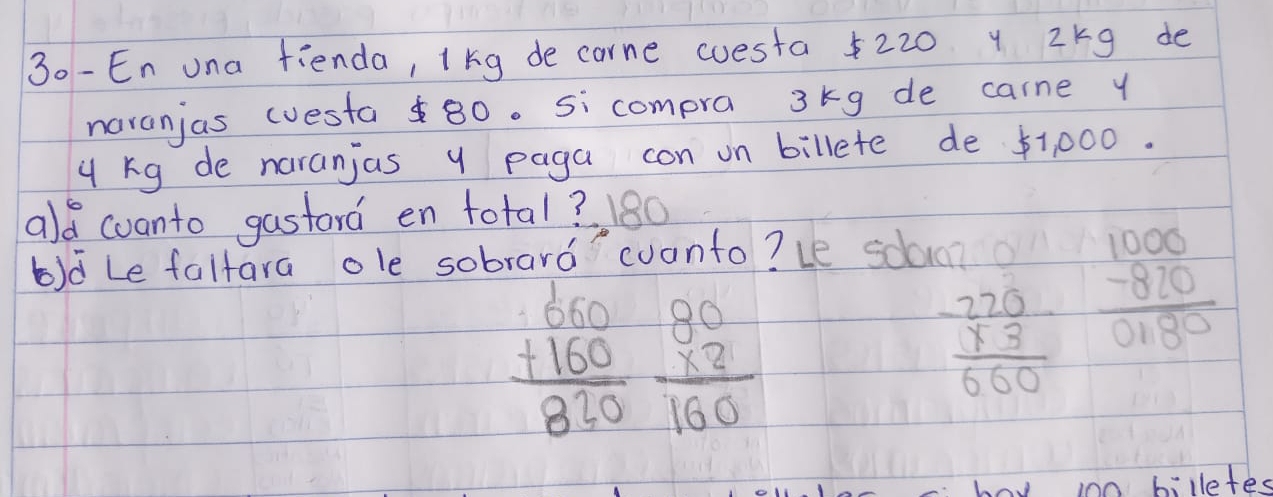 3.- En una tienda, 1 kg de carne cuesta $220 y 2kg de
naranjas cuesta $80. Si compra 3kg de carne y
4 kg de naranjas y paga con un billete de $1,000.
a)¿ cuanto gastará en total? 180
b)¿ Le faltara o le sobrará cuanto? Le
1000
-820
0180
660
+160
820
80
x2
160
220
x3
660
hay 100 billetes